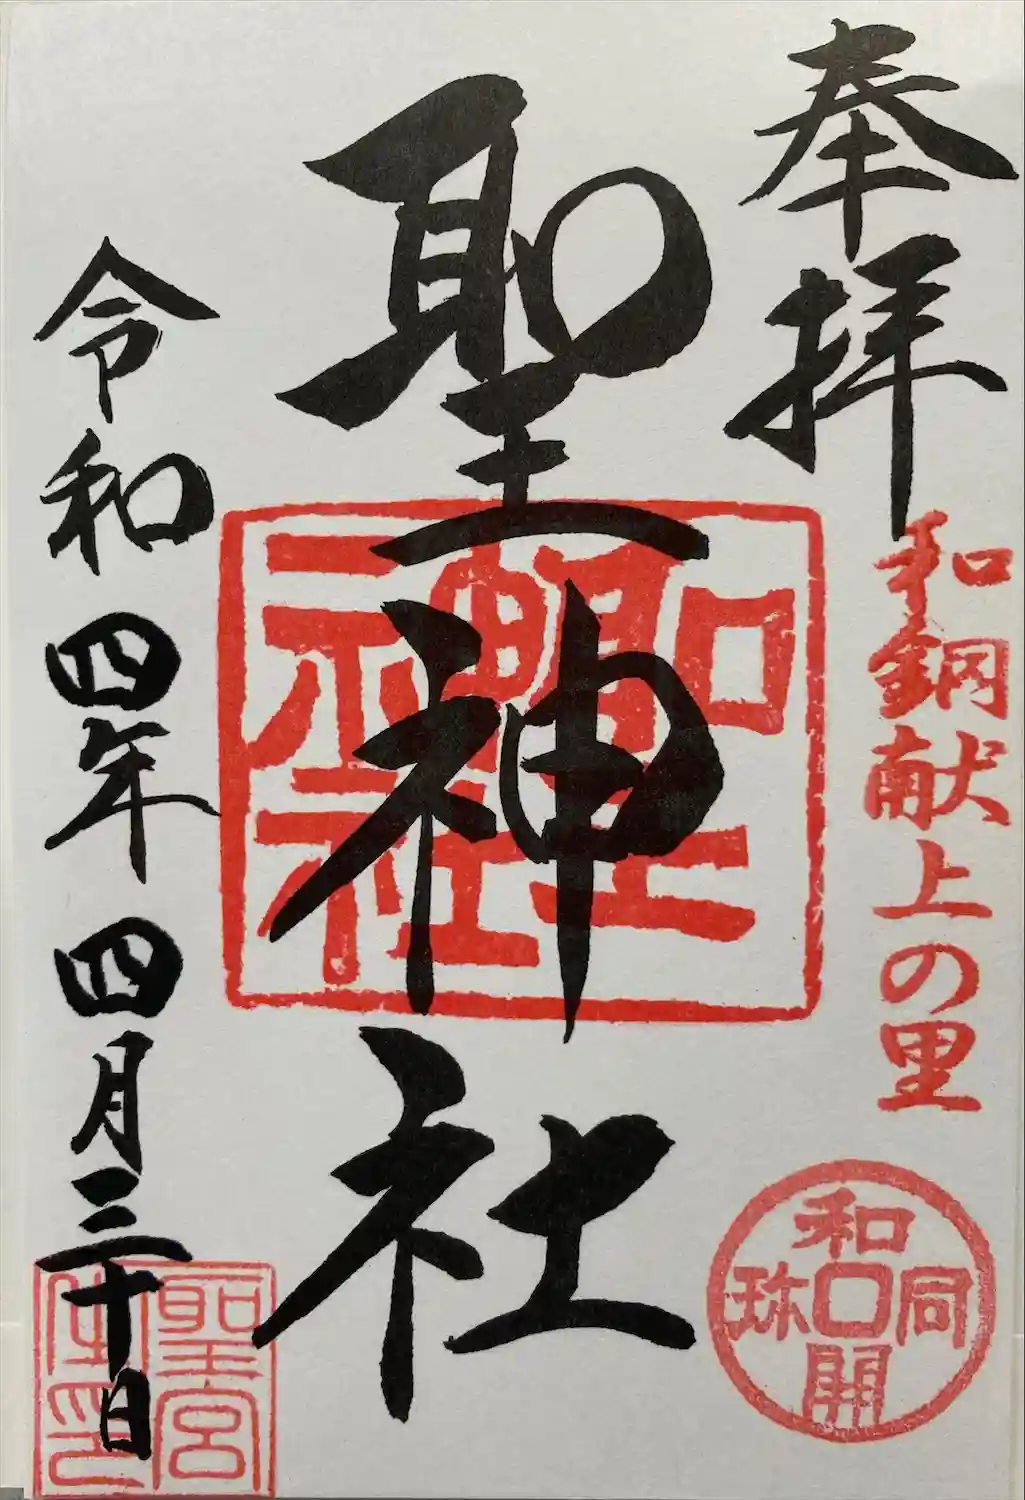 奉拝
和銅献上の里
和同開珎
聖神社
聖神社
令和四年四月三十日
聖宮